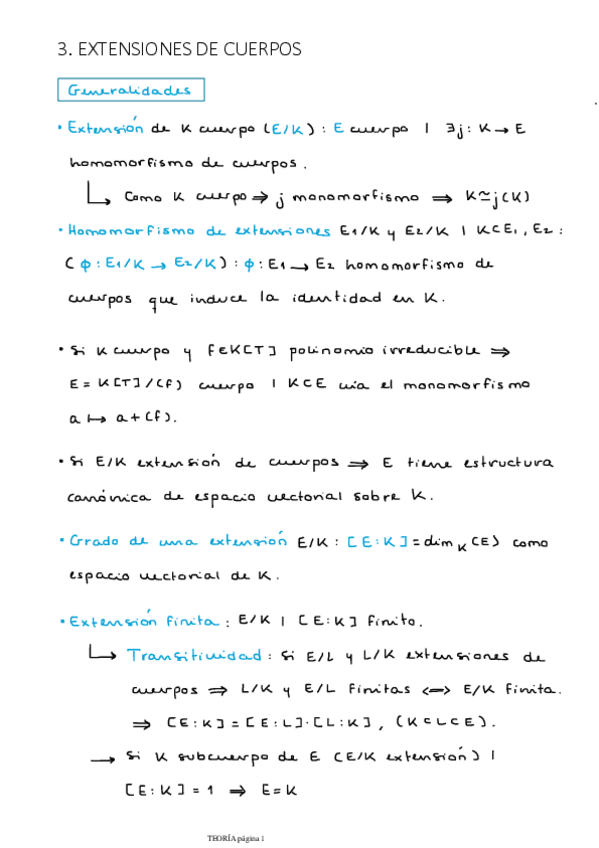 3. EXTENSIONES DE CUERPOS
Generalidades
• Extensión de K cuerpo (E/K) : E cuerpo | ∃j : K → E
homomorfismo de cuerpos.
↳ Como K cuerpo ⇒ j monomorfismo ⇒ K ≃ j(K)
• Homomorfismo de extensiones E1/K y E2/K | K⊂E1, E2 :
(ϕ : E1/K → E2/K) : ϕ : E1 → E2 homomorfismo de
cuerpos que induce la identidad en K.
• Si K cuerpo y f∈K[T] polinomio irreducible ⇒
E = K[T]/(f) cuerpo | K⊂E vía el monomorfismo
a ↦ a+(f).
• Si E/K extensión de cuerpos ⇒ E tiene estructura
canónica de espacio vectorial sobre K.
• Grado de una extensión E/K : [E:K] = dim_K (E) como
espacio vectorial de K.
• Extensión finita : E/K | [E:K] finito.
↳ Transitividad : Si E/L y L/K extensiones de
cuerpos ⇒ L/K y E/L finitas <=> E/K finita.
⇒ [E:K] = [E:L]·[L:K], (K⊂L⊂E).
→ Si K subcuerpo de E (E/K extensión) |
[E:K] = 1 ⇒ E=K
TEORÍA página 1